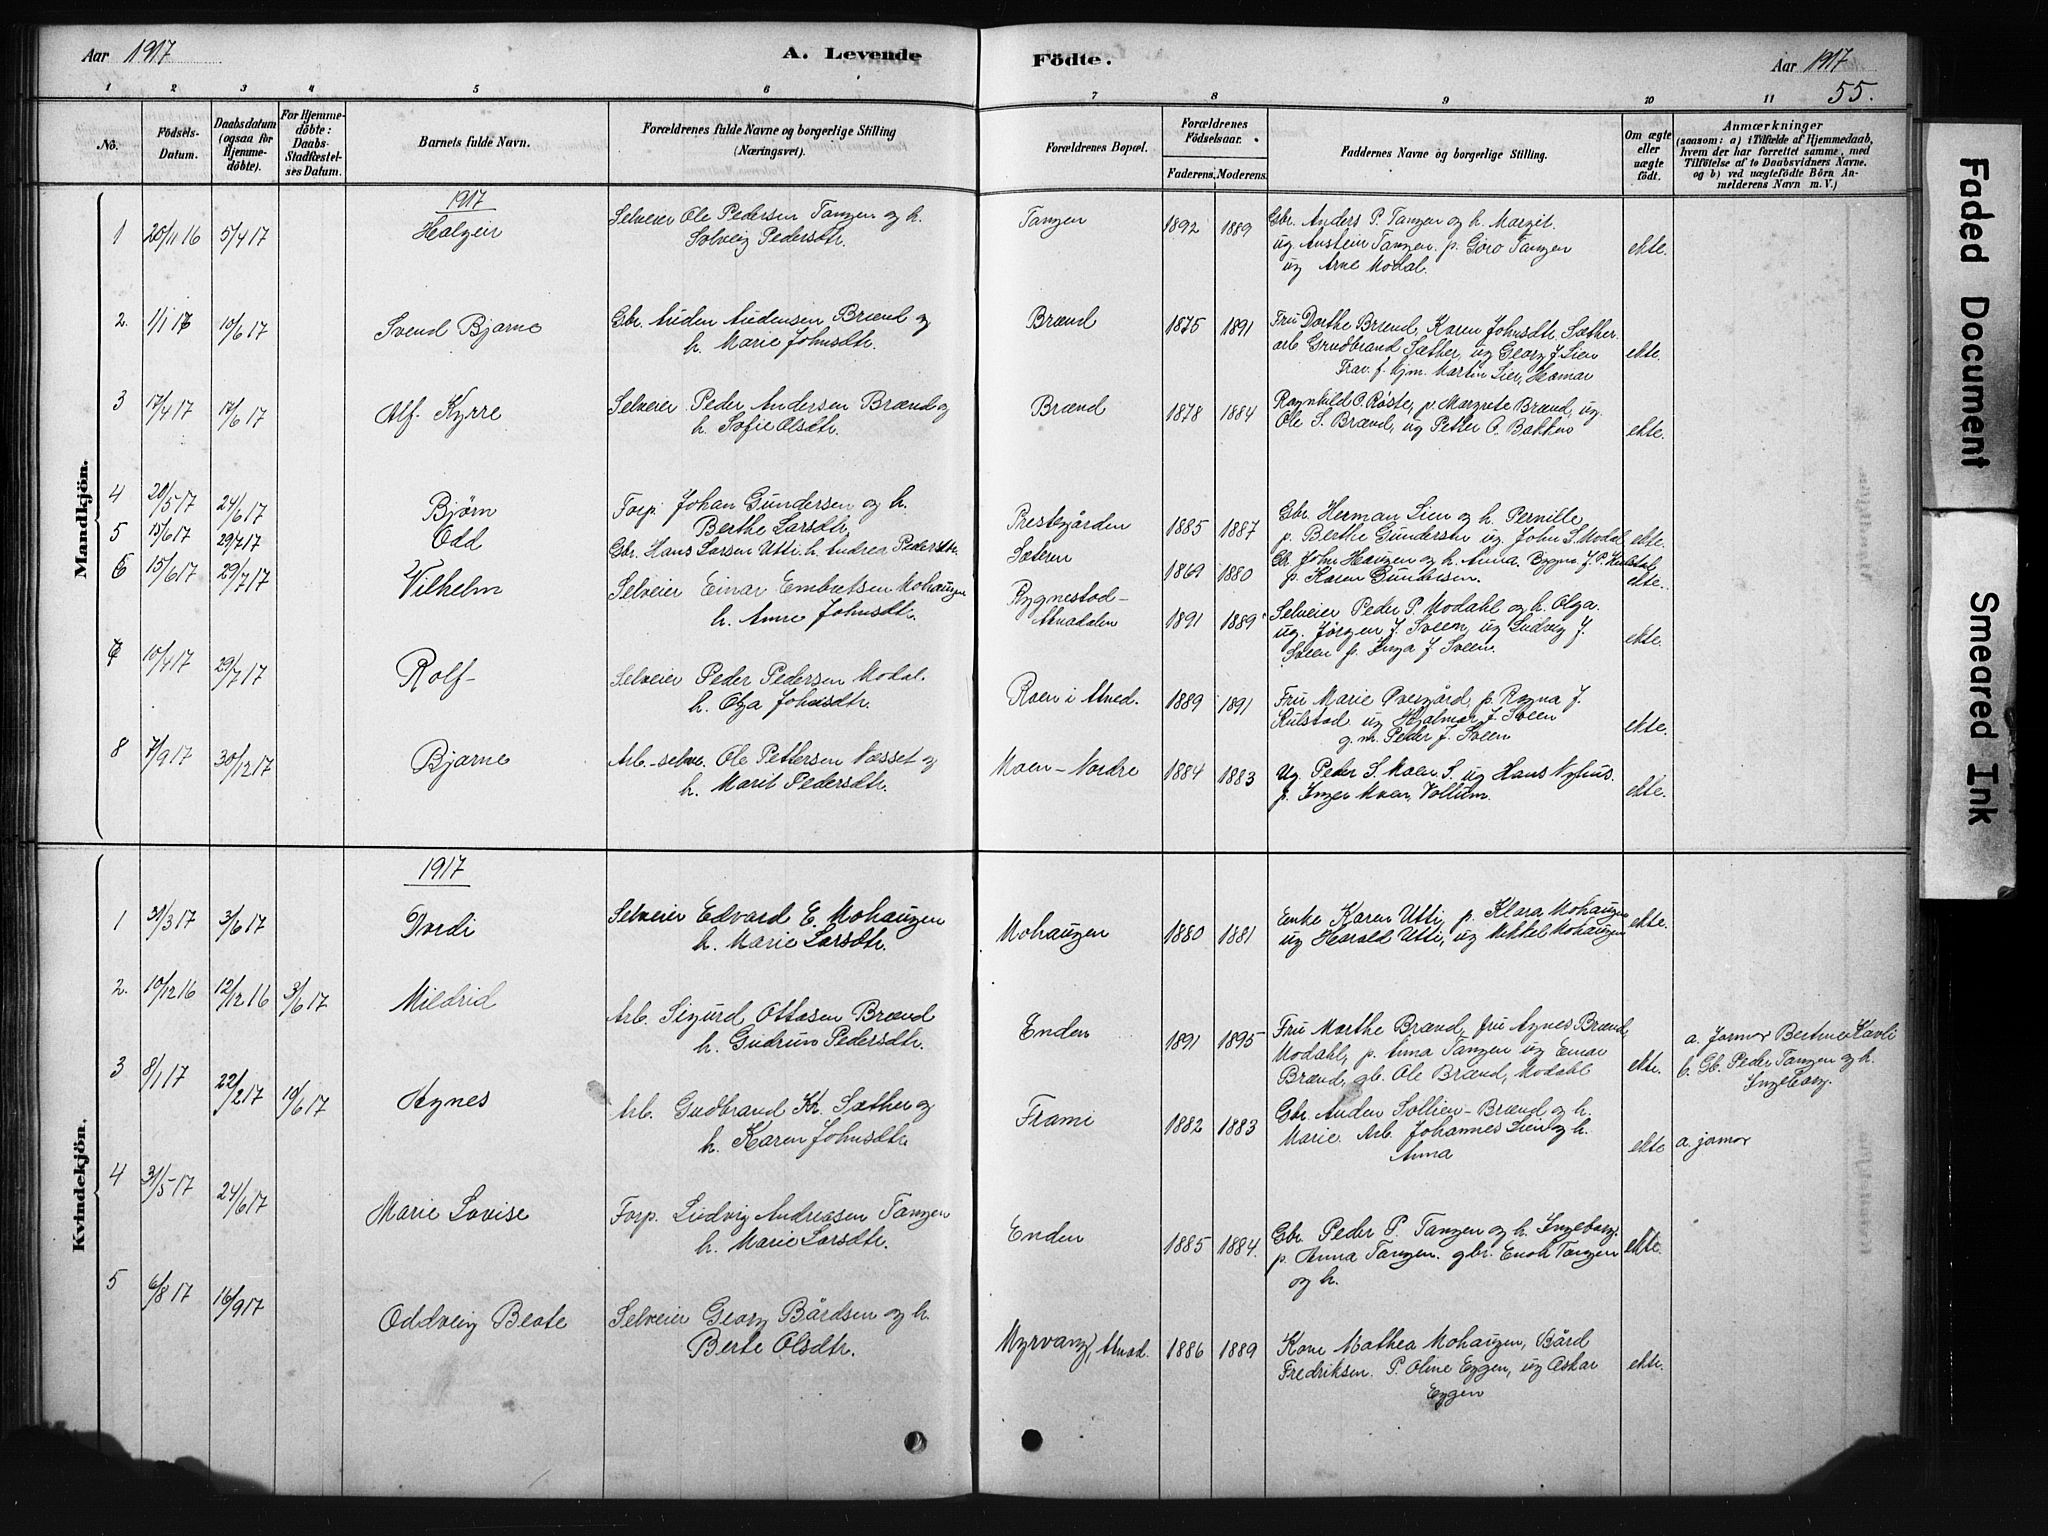 Aar 1917
A. Levende
Födte.
Aar 1917
55.
1 2 3 4 5 6 7 8 9 10 11
No.
Födsels-Datum.
Daabsdatum (ogsaa for Hjemmedöbte).
For Hjemmedöbte: Daabs-Stadfæstelses Datum.
Barnets fulde Navn.
Forældrenes fulde Navne og borgerlige Stilling (Næringsvei).
Forældrenes Bopæl.
Forældrenes Födselsaar.
Faderens. Moderens.
Faddernes Navne og borgerlige Stilling.
Om ægte eller uægte födt.
Anmærkninger
(saasom: a) i Tilfælde af Hjemmedaab, hvem der har forrettet samme, med Tilföielse af to Daabsvidners Navne. og b) ved uægtefödte Börn Anmelderens Navn m. V.)
Mandkjön.
1917
1 20/11 16 5/4 17 Halgeir
Selveier Ole Pedersen Tangen og h.
Solveig Pedersdtr.
Tangen 1892 1889
Gbr. Anders P. Tangen og h. Margit.
ug Anstein Tangen. p. Goro Tangen
ug Arne Modal. ekte.
2. 1/1 17 10/6 17 Svend Bjarne
Gbr. Auden Audensen Brænd og
h. Marie Johnsdtr.
Brænd 1875 1891
Fru Dorthe Brænd, Karen Johnsdt. Sæther
arb. Gudbrand Sæther, ug Georg J. Lien
Frav. f. Hjm. Martin Lier, Hamar ekte.
3 17/4 17 17/6 17 Alf. Kyrre
Selveier Peder Andersen Brænd og
h. Sofie Olsdtr.
Brænd 1878 1884
Ragnhild O. Røste, p. Margrete Brænd, ug.
Ole S. Brænd, ug Petter O. Bakken ekte.
4 20/5 17 24/6 17 Bjørn
Forp. Johan Gundersen og h.
Berthe Larsdtr.
Prestegården 1885 1887
Gbr. Herman Lien og h. Pernille
p. Berthe Gundersen ug. John S. Modal ekte.
5 15/6 17 29/7 17 Odd
Gbr. Hans Larsen Utti. h. Andrea Pedersdtr.
Sæteren 1869 1880
Gb. John Haugen og h. Anna. Bygm. J. P. Kulstad
p. Karen Gundersen. ekte.
6 15/6 17 29/7 17 Vilhelm
Selveier Einar Embretsen Mohaugen
h. Anne Johnsdtr.
Rygnestad-
Atnadalen 1891 1889
Selveier Peder P. Modahl og h. Olga.
ug. Jørgen J. Sveen, ug Ludvig J.
Sveen p. Inga J Sveen. ekte.
7 10/4 17 29/7 17 Rolf
Selveier Peder Pedersen Modal.
h. Olga Johnsdtr.
Roen i Atned. 1889 1891
Fru Marie Øvergård, p. Ragna J.
Kulstad ug Hjalmar J. Sveen
g. m. Peder J. Sveen ekte.
8 7/9 17 30/12 17 Bjarne
Arb.-selve. Ole Pettersen Næsset og
h. Marit Pedersdtr.
Moen-Nordre 1884 1883
Ug. Peder S. Moen S. ug Hans Nyhus.
p. Inger Moen, Vollum. ekte.
Kvindekjön.
1917
1 31/3 17 3/6 17 Gordi
Selveier Edvard E. Mohaugen
h. Marie Larsdtr.
Mohaugen 1880 1881
Enke Karen Utti, p. Klara Mohaugen
ug Harald Utti, ug Mikkel Mohaugen ekte.
2. 10/12 16 12/12 16 3/6 17 Mildrid
Arb. Sigurd Ottosen Brænd
h. Gudrun Pedersdtr.
Enden 1891 1895
Fru Marthe Brænd, fru Agnes Brænd,
Modahl, p. Anna Tangen ug Einar
Brænd, gb. Ole Brænd, Modahl ekte.
a. Jormor Bertine Kavli
b. Gb. Peder Tangen og h.
Ingeborg.
3 8/1 17 22/2 17 10/6 17 Agnes
Arb. Gudbrand Kr. Sæther og
h. Karen Johnsdtr.
Frami 1882 1883
Gbr. Auden Sollien-Brænd og h.
Marie. Arb. Johannes Lien og h.
Anna ekte
a. jormor
4 31/5 17 24/6 17 Marie Lovise
Forp. Ludvig Andreasen Tangen
h. Marie Larsdtr.
Enden 1885 1884.
Gbr. Peder P. Tangen og h. Ingeborg.
p. Anna Tangen. gbr. Enok Tangen
og h. ekte.
5 6/8 17 16/9 17 Oddveig Beate
Selveier Georg Bårdsen og h.
Berte Olsdtr.
Myrvang, Atnad. 1886 1889
Kone Mathea Mohaugen, Bård
Fredriksen. P. Oline Eggen, ug Oskar
Eggen ekte.
Faded Document
Smeared Ink